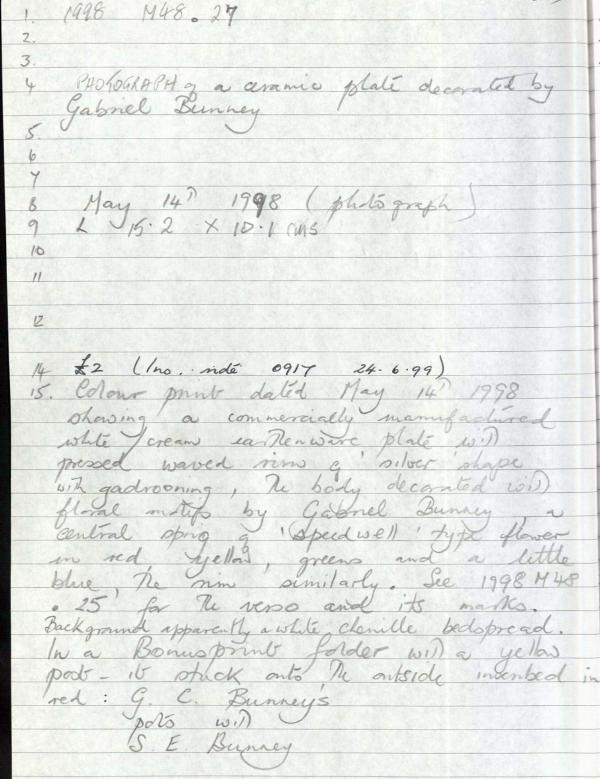 1. 1998 M48.27
2.
3.
4 PHOTOGRAPH of a ceramic plate decorated by
Gabriel Bunney
5.
6
7
8 May 14th 1998 (photograph)
9 L 15.2 X 10.1 cms
10
11
12
14 £2 (Ins. note 0917 24.6.99)
15. Colour print dated May 14th 1998
showing a commercially manufactured
white/cream earthenware plate with
pressed waved rim of 'silver' shape
with gadrooning, the body decorated with
floral motifs by Gabriel Bunney, a
central sprig of 'speedwell' type flower
in red, yellow, greens and a little
blue, the rim similarly. See 1998 M48
.25 for the verso and its marks.
Background apparently a white chenille bedspread.
In a Bonusprint folder with a yellow
post-it stuck onto the outside inscribed in
red: G. C. Bunney's
pots with
S. E. Bunney